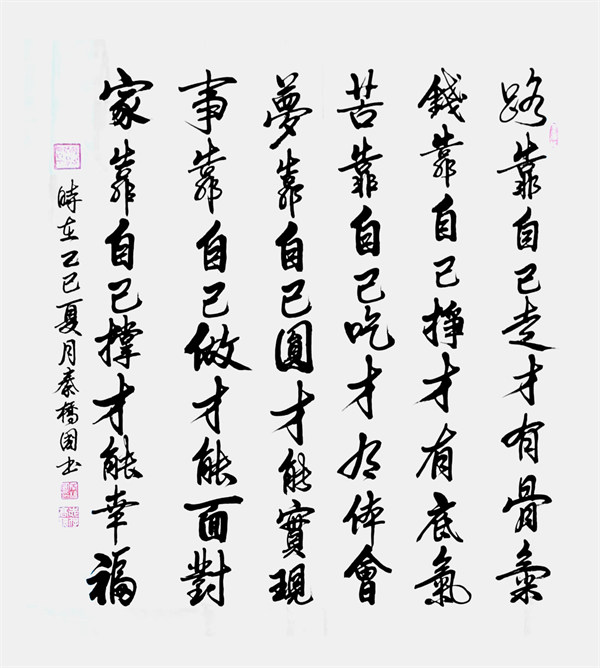 路靠自己走才有骨氣
錢靠自己掙才有底氣
苦靠自己吃才有体會
夢靠自己圓才能實現
事靠自己做才能面對
家靠自己撐才能幸福
時在乙巳夏月秦橋国书